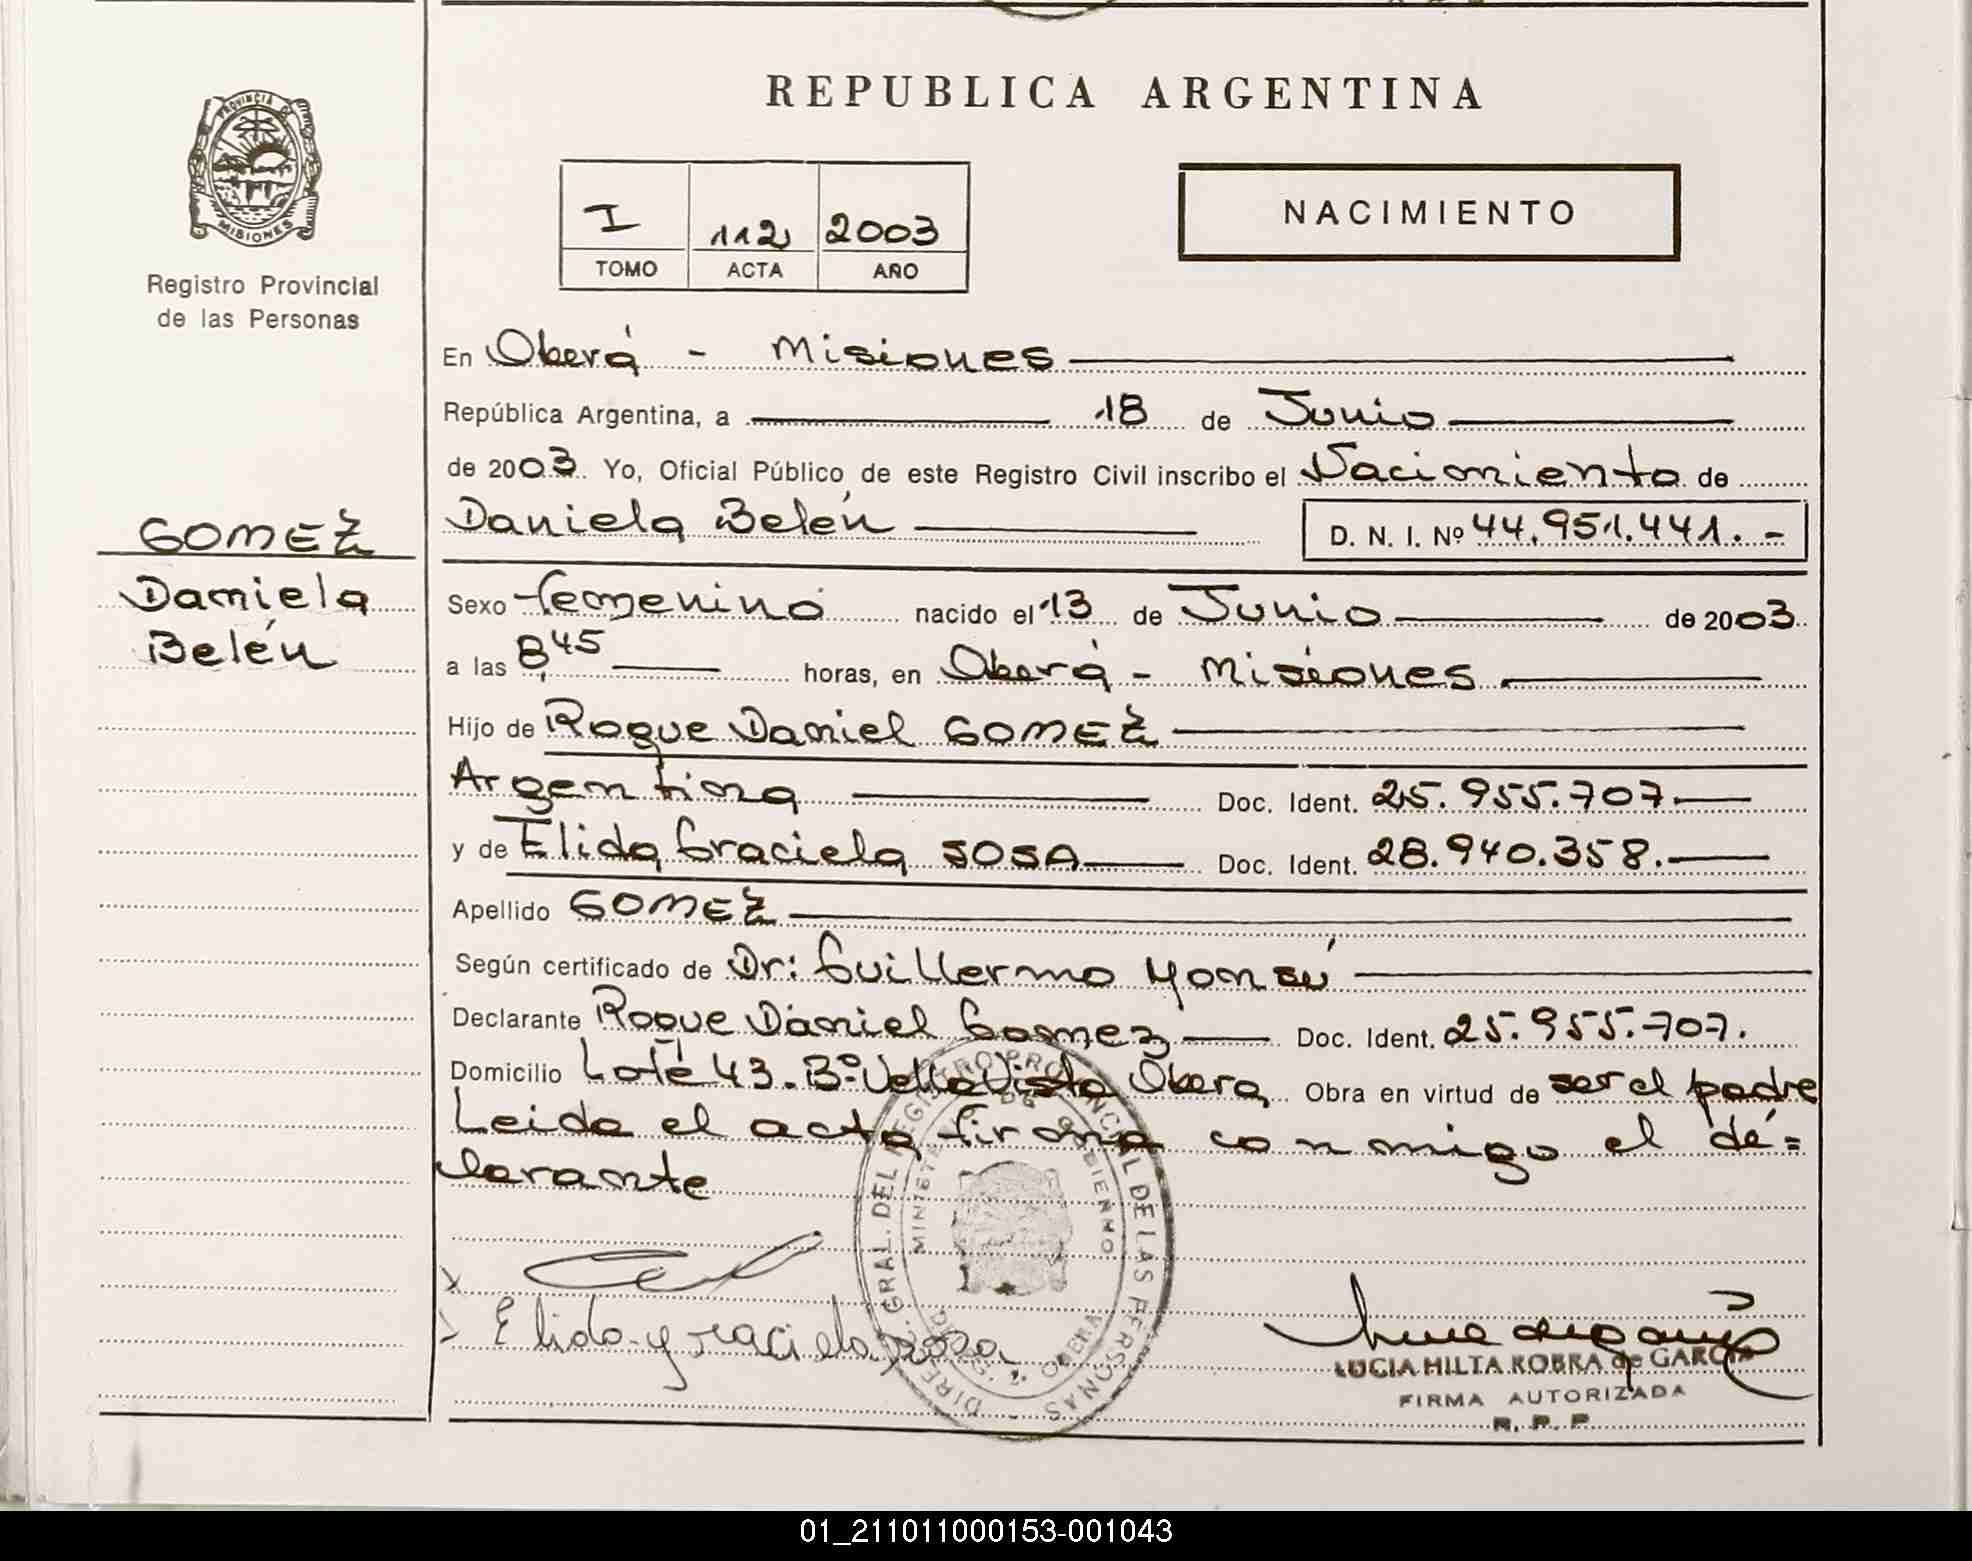 REPUBLICA ARGENTINA
PROVINCIA DE MISIONES
Registro Provincial
de las Personas
I 112 2003
TOMO ACTA AÑO
NACIMIENTO
GOMEZ
Daniela
Belén
En Oberá - Misiones
República Argentina, a 18 de Junio
de 2003. Yo, Oficial Público de este Registro Civil inscribo el Nacimiento de
Daniela Belén D. N. I. Nº 44.951.441.-
Sexo femenino nacido el 13 de Junio de 2003
a las 8,45 horas, en Oberá - Misiones
Hijo de Roque Daniel GOMEZ
Argentina Doc. Ident. 25.955.707.
y de Elida Graciela SOSA Doc. Ident. 28.940.358.
Apellido GOMEZ
Según certificado de Dr: Guillermo
Declarante Roque Daniel Gomez Doc. Ident. 25.955.707.
Domicilio Lote 43. Bº. Vella Vista Obera Obra en virtud de ser el padre
Leida el acta firma conmigo el de=
clarante
Elida graciela sosa
DIREC. GRAL. DEL REGISTRO PROVINCIAL DE LAS PERSONAS
MINISTERIO DE GOBIERNO
OBERA
LUCIA HILTA ROBRA de GARCIA
FIRMA AUTORIZADA
R. P. P.
01_211011000153-001043